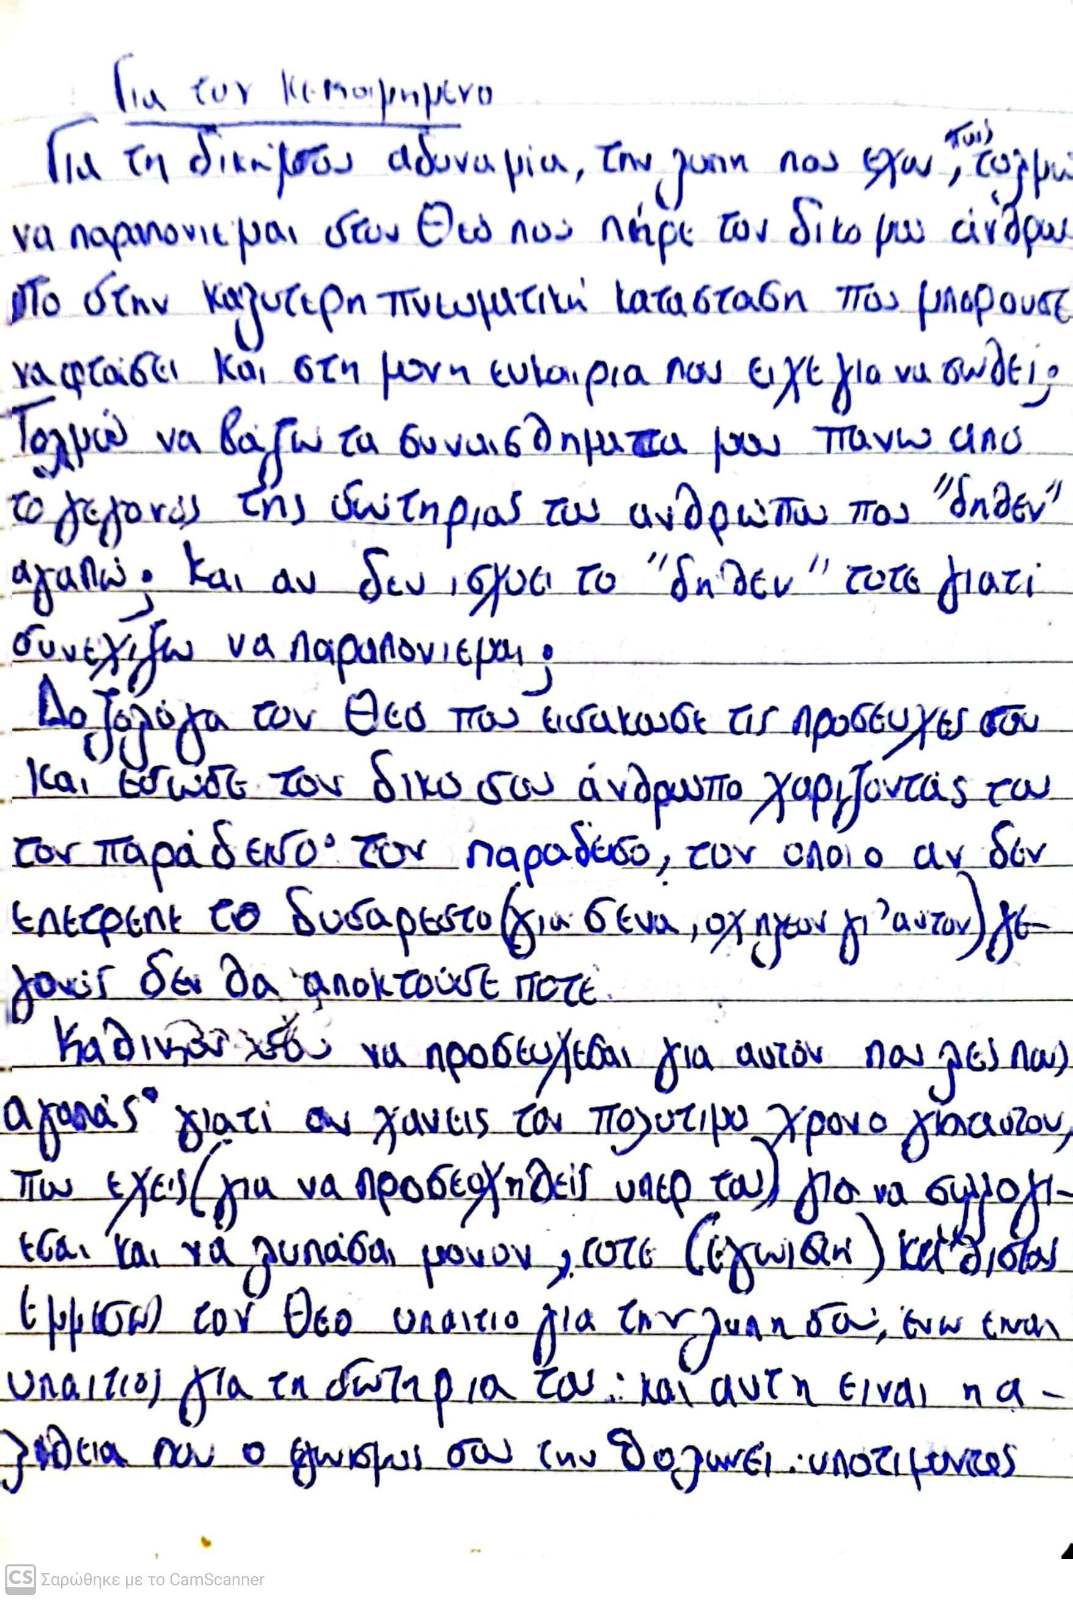 Για τον κεκοιμημενο
Για τη δική μου αδυναμία, την λυπη που εχω, πως τολμώ
να παραπονιεμαι στον Θεό που πήρε τον δικο μου άνθρω
πο στην καλυτερη πνευματική κατασταση που μπορουσε
να φτάσει και στη μονη ευκαιρια που ειχε για να σωθεί;
Τολμώ να βάζω τα συναισθηματα μου πανω από
το γεγονός της σωτηριας του ανθρώπου που "δηθεν"
αγαπώ; και αν δεν ισχυει το "δηθεν" τοτε γιατί
συνεχίζω να παραπονιεμαι;
Δοξολόγα τον Θεό που εισακωσε τις προσευχες σου
και εσωσε τον δικο σου άνθρωπο χαριζοντάς του
τον παράδεισο· τον παραδεισο, τον οποιο αν δεν
επετρεπε το δυσαρεστο (για σενα, οχι πλεον γι' αυτον) γε-
γονός δεν θα αποκτούσε ποτε.
Καθικον σου να προσευχεσαι για αυτόν που λες πως
αγαπάς· γιατί αν χανεις τον πολυτιμο χρονο για αυτον,
που εχεις (για να προσευχηθείς υπερ του) για να συλλογι-
εσαι και νά λυπάσαι μονον, τοτε (εγωιστικά) καθιστας
εμμεσως τον Θεο υπαιτιο για την λυπη σου, ενω ειναι
υπαιτιος για τη σωτηρια του: και αυτη ειναι η α-
λήθεια που ο εγωισμος σου την θολωνει: υποτιμοντας
Σαρώθηκε με το CamScanner